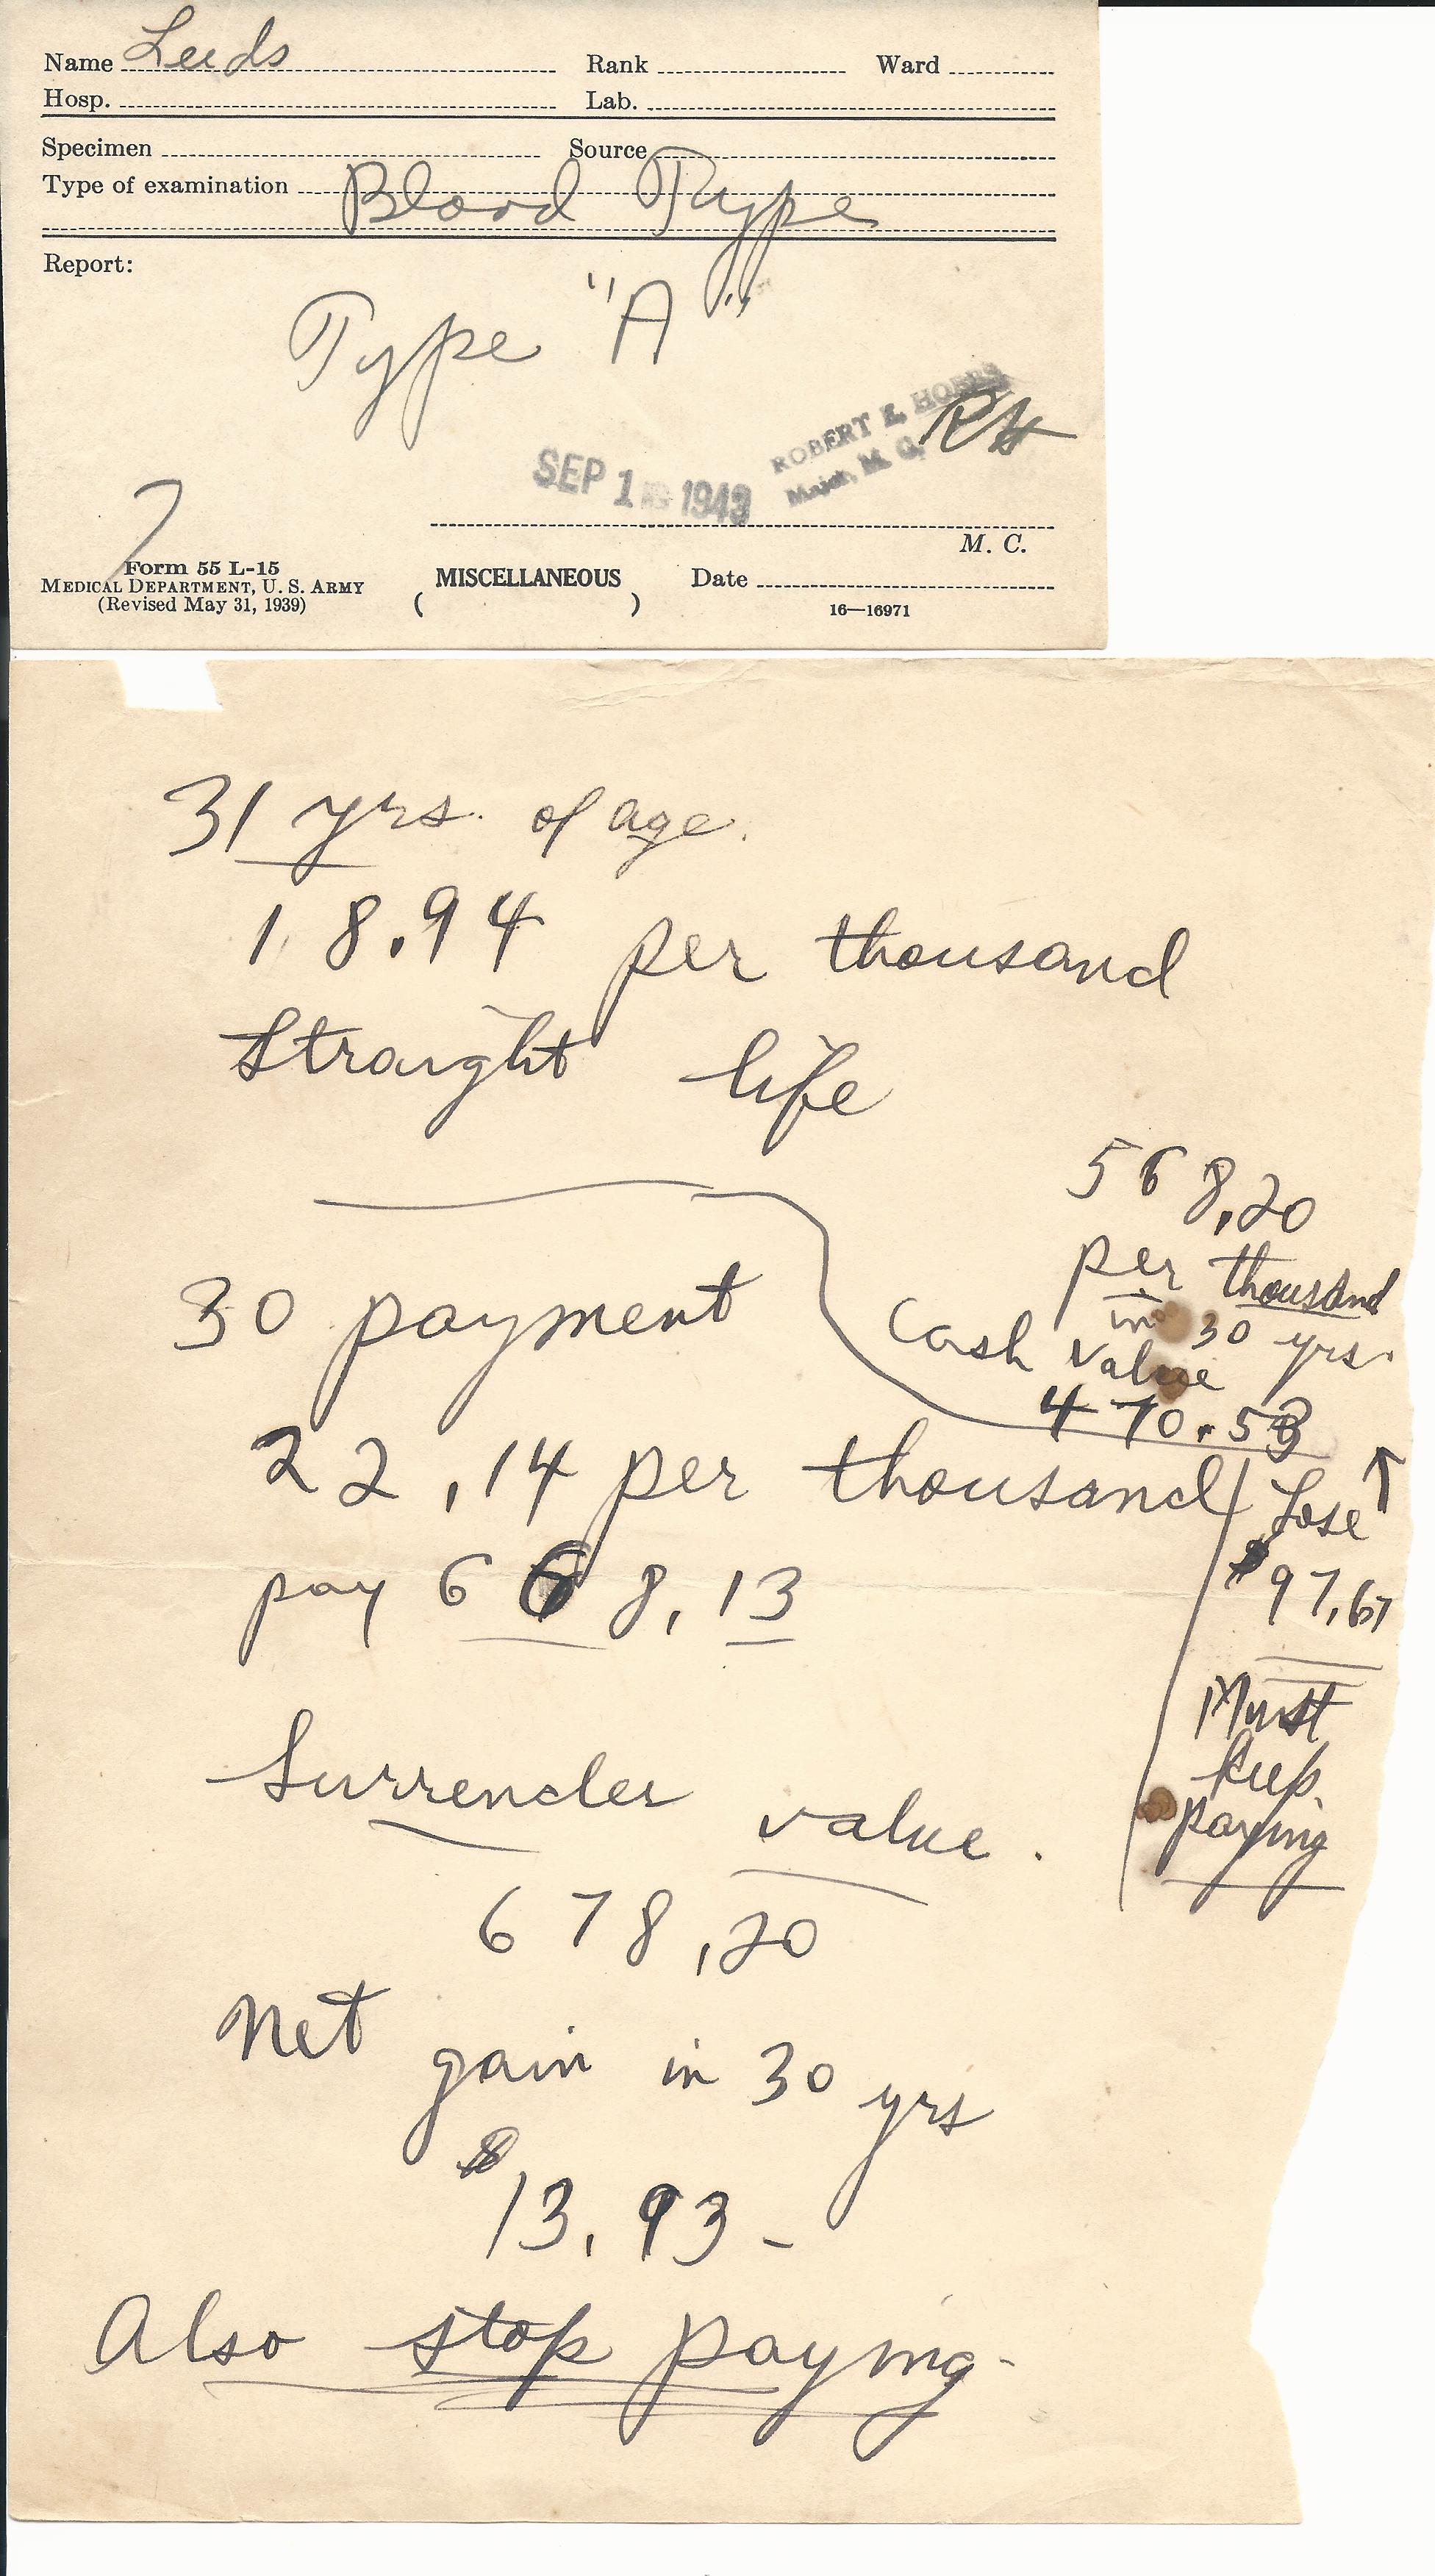 Name Leeds Rank Ward
Hosp. Lab.
Specimen Source
Type of examination Blood Type
Report:
Type "A"
ROBERT E.
Major, M. C.
SEP 1 1943
M. C.
Form 55 L-15
MEDICAL DEPARTMENT, U. S. ARMY
(Revised May 31, 1939)
MISCELLANEOUS
( )
Date
16—16971
31 yrs. of age.
18.94 per thousand
Straight life
568,20
per thousand
in 30 yrs.
Cash value
470.53
30 payment
22,14 per thousand
pay 668,13
Lose ↑
$97,67
Must
keep
paying
Surrender value.
678,20
Net gain in 30 yrs
$13.93 -
Also stop paying-